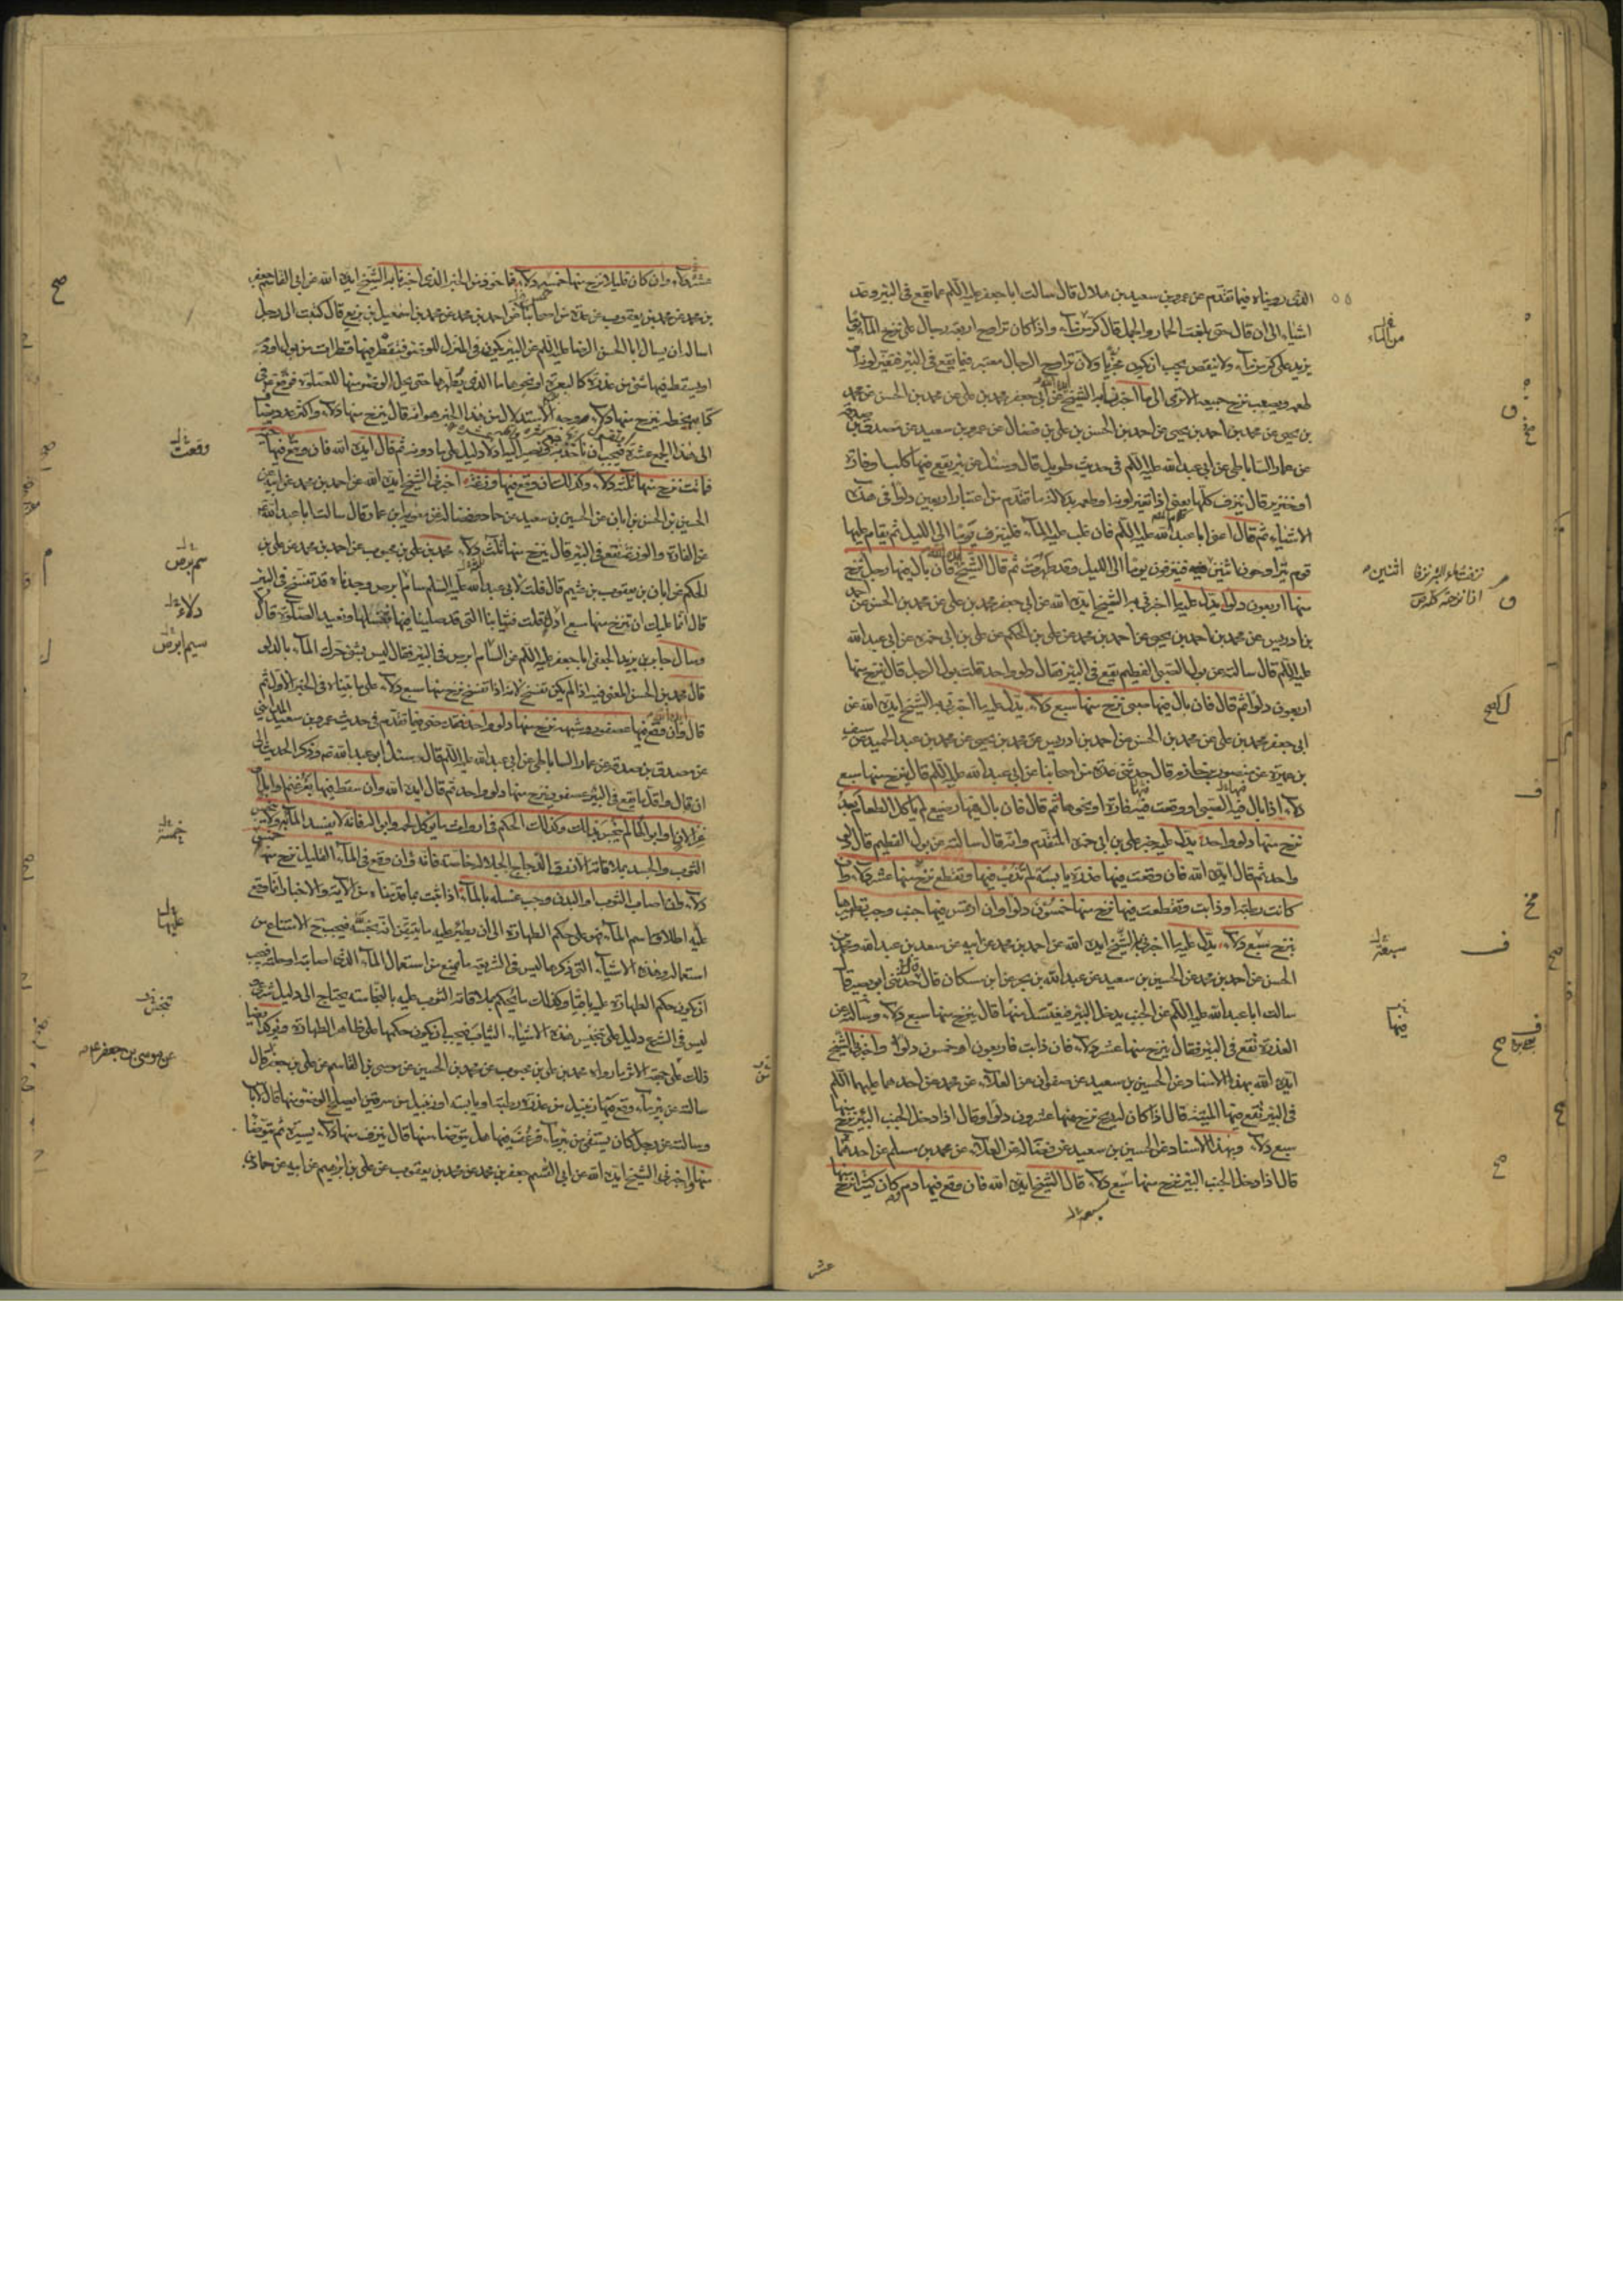 الذي رويناه فيما تقدم عن عمرو بن سعيد بن هلال قال سالت ابا جعفر عليه السلم عما يقع في البئر
اشياء الى ان قال حتى بلغت الحمار والجمل قال كر من ماء واذا كان تراوح اربعة رجال على نزح الماء
يزيد على كر من ماء ولا ينقص يجب ان يكون مجزيا ولان تراوح الرجال معتبر فيما يقع في البئر فتغير لونه او
طعمه ويصعب نزح جميعه الا ترى الى ما اخبرنا به الشيخ عن ابي جعفر محمد بن علي عن محمد بن الحسن عن محمد
بن يحيى عن محمد بن احمد بن يحيى عن احمد بن الحسن بن علي بن فضال عن عمرو بن سعيد عن مصدق بن صدقة
عن عمار الساباطي عن ابي عبد الله عليه السلم في حديث طويل قال وسئل عن بئر يقع فيها كلب او فارة
او خنزير قال ينزف كلها يعني اذا تغير لونه او طعمه بدلالة ما تقدم من اعتبار اربعين دلوا في هذه
الاشياء ثم قال اعني ابا عبد الله عليه السلم فان غلب عليه الماء فلينزف يوما الى الليل ثم يقام عليها
قوم يتراوحون اثنين اثنين فينزفون يوما الى الليل وقد طهرت ثم قال الشيخ ايده الله فان بال فيها رجل نزح
منها اربعون دلوا يدل عليه ما اخبرني به الشيخ ايده الله عن ابي جعفر محمد بن علي عن محمد بن الحسن عن احمد
بن ادريس عن محمد بن احمد بن يحيى عن احمد بن محمد عن علي بن الحكم عن علي بن ابي حمزه عن ابي عبد الله
عليه السلم قال سالته عن بول الصبي الفطيم يقع في البئر فقال دلو واحد قلت بول الرجل قال ينزح منها
اربعون دلوا ثم قال فان بال فيها صبي نزح منها سبع دلاء يدل عليه ما اخبرني به الشيخ ايده الله عن
ابي جعفر محمد بن علي عن محمد بن الحسن عن احمد بن ادريس عن محمد بن يحيى عن محمد بن عبد الحميد عن سيف
بن عميرة عن منصور بن حازم قال حدثني عدة من اصحابنا عن ابي عبد الله عليه السلم قال ينزح منها سبع
دلاء اذا بال فيها الصبي او وقعت فيها فارة او نحوها ثم قال فان بال فيها رضيع لم ياكل الطعام بعد
نزح منها دلو واحد يدل عليه خبر علي بن ابي حمزه المتقدم وانه قال سالته عن بول الفطيم قال دلو
واحد ثم قال ايده الله فان وقعت فيها عذرة يابسة لم تذب فيها وتقطع نزح منها عشر دلاء وان
كانت رطبة او ذابت وتقطعت فيها نزح منها خمسون دلوا وان ارتمس فيها جنب وجب تطهيرها
بنزح سبع دلاء يدل عليه ما اخبرني به الشيخ ايده الله عن احمد بن محمد عن ابيه عن سعد بن عبد الله ومحمد بن
الحسن عن احمد بن محمد عن الحسين بن سعيد عن عبد الله بن يحيى عن ابن مسكان قال حدثني ابو بصير قال
سالت ابا عبد الله عليه السلم عن الجنب يدخل البئر فيغتسل منها قال ينزح منها سبع دلاء وسالته عن
العذرة تقع في البئر فقال ينزح منها عشر دلاء فان ذابت فاربعون او خمسون دلوا واخبرني الشيخ
ايده الله بهذا الاسناد عن الحسين بن سعيد عن صفوان عن العلاء عن محمد عن احدهما عليهما السلم
في البئر تقع فيها الميتة قال اذا كان له ريح نزح منها عشرون دلوا وقال اذا دخل الجنب البئر نزح منها
سبع دلاء وبهذا الاسناد عن الحسين بن سعيد عن فضالة عن العلاء عن محمد بن مسلم عن احدهما
قال اذا دخل الجنب البئر نزح منها سبع دلاء قال الشيخ ايده الله فان وقع فيها دم وكان كثيرا نزح منها
عشر
عشر دلاء وان كان قليلا نزح منها خمس دلاء فماخوذ من الخبر الذي اخبرنا به الشيخ ايده الله عن ابي القاسم جعفر
بن محمد عن محمد بن يعقوب عن عدة من اصحابنا عن احمد بن محمد عن محمد بن اسمعيل بن بزيع قال كتبت الى رجل
اساله ان يسال ابا الحسن الرضا عليه السلم عن البئر يكون في المنزل للوضوء فيقطر فيها قطرات من بول او دم
او يسقط فيها شئ من عذرة كالبعرة او نحوها ما الذي يطهرها حتى يحل الوضوء منها للصلوة فوقع عم في
كتابي بخطه ينزح منها دلاء وجه الاستدلال من هذا الخبر هو انه قال ينزح منها دلاء واكثر عدد يضاف
الى هذا الجمع عشرة فيجب ان ناخذ به ونصير اليه اذ لا دليل على ما دونه ثم قال ايده الله فان وقع فيها حية
فماتت نزح منها ثلث دلاء وكذلك ان وقع فيها وزغة اخبرني الشيخ ايده الله عن احمد بن محمد عن ابيه عن
الحسين بن الحسن بن ابان عن الحسين بن سعيد عن حماد وفضالة عن معوية بن عمار قال سالت ابا عبد الله عم
عن الفارة والوزغة تقع في البئر قال ينزح منها ثلث دلاء محمد بن علي بن محبوب عن احمد بن محمد عن علي بن
الحكم عن ابان بن يعقوب بن عثيم قال قلت لابي عبد الله عليه السلم سام ابرص وجدناه قد تفسخ في البئر
قال انما عليك ان تنزح منها سبع ادل قلت فثيابنا التي قد صلينا فيها نغسلها ونعيد الصلوة قال لا
وسال جابر بن يزيد الجعفي ابا جعفر عليه السلم عن السام ابرص في البئر فقال ليس بشئ حرك الماء بالدلو
قال محمد بن الحسن المعنى فيه اذا لم يكن تفسخ لانه اذا تفسخ نزح منها سبع دلاء على ما بيناه في الخبر الاول ثم
قال وان وقع فيها عصفور وشبهه نزح منها دلو واحد فقد مضى فيما تقدم في حديث عمرو بن سعيد المدايني
عن مصدق بن صدقة عن عمار الساباطي عن ابي عبد الله عليه السلم قال سئل ابو عبد الله عم وذكر الحديث الى
ان قال واقل ما يقع في البئر عصفور ينزح منها دلو واحد ثم قال ايده الله وان سقط فيها بعر غنم او ابل او
غزلان او ابوالها لم ينجس بذلك وكذلك الحكم في ارواث ما يوكل لحمه وابواله فانه لا يفسد الماء به ولا ينجس
الثوب والجسد بملاقاته الا ذرق الدجاج الجلال خاصة فانه ان وقع في الماء القليل نزح منها خمس
دلاء وان اصاب الثوب او البدن وجب غسله بالماء اذا ثبت بما قدمناه من الاية والاخبار ان ما وقع
عليه اطلاق اسم الماء فهو على حكم الطهارة الى ان يطرء عليه ما يتيقن انه نجسه فيجب ح الامتناع من
استعماله وهذه الاشياء التي ذكرها ليس في الشريعة ما يمنع من استعمال الماء الذي اصابته او حلته فيجب
ان يكون حكم الطهارة عليه باقيا وكذلك ما يحكم بملاقاته الثوب عليه بالنجاسة يحتاج الى دليل شرعي
ليس في الشرع دليل على تنجيس هذه الاشياء الثياب فيجب ان يكون حكمها على ظاهر الطهارة ويؤكد ايضا
ذلك من جهة الاثر ما رواه محمد بن علي بن محبوب عن محمد بن الحسين عن موسى بن القاسم عن علي بن جعفر قال
سالته عن بئر ماء وقع فيها زنبيل من عذرة رطبة او يابسة او زنبيل من سرقين ايصلح الوضوء منها قال لا باس
وسالته عن رجل كان يستقي من بئر ماء فرعف فيها هل يتوضا منها قال ينزف منها دلاء يسيرة ثم يتوضا
منها واخبرني الشيخ ايده الله عن ابي القسم جعفر بن محمد عن محمد بن يعقوب عن علي بن ابرهيم عن ابيه عن حماد
وقعت
سم ابرص
دلاء
عليها
عن موسى بن جعفر عم
سبعة
فيها